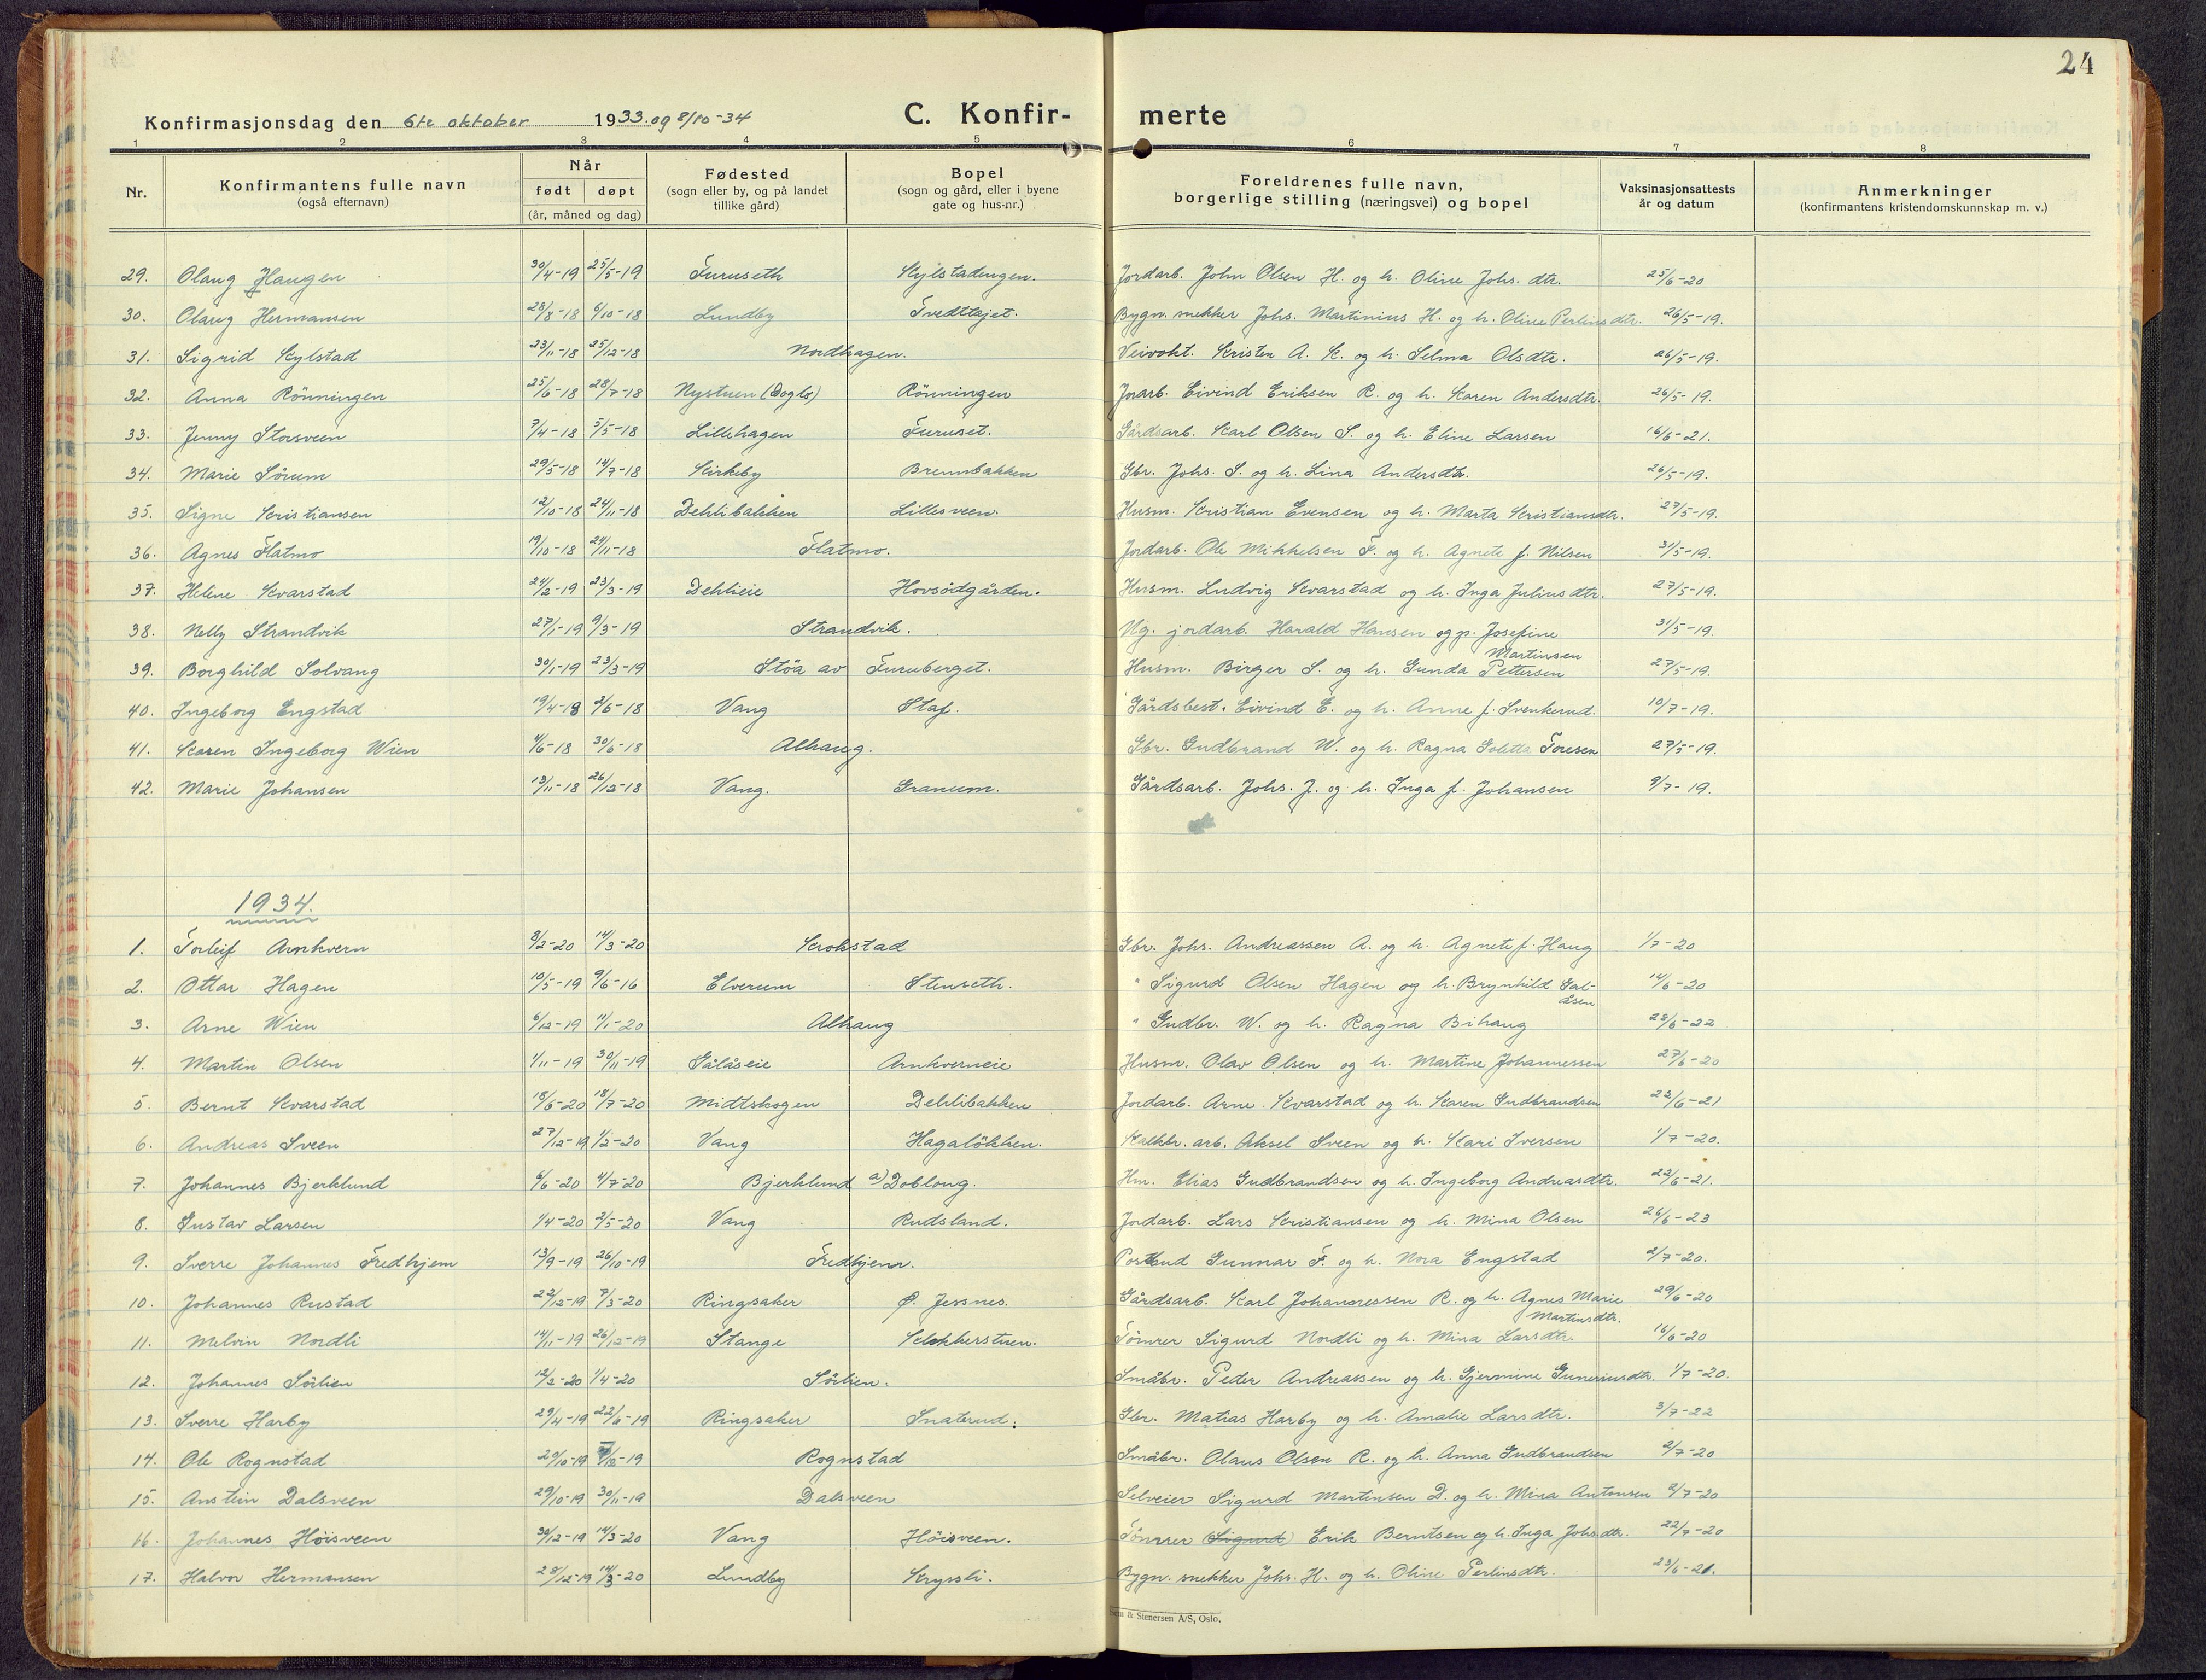 24
Konfirmasjonsdag den 6te oktober 1933. og 8/10-34 C. Konfirmerte
1 2 3 4 5 6 7 8
Nr. Konfirmantens fulle navn (også efternavn) Når født døpt (år, måned og dag) Fødested (sogn eller by, og på landet tillike gård) Bopel (sogn og gård, eller i byene gate og hus-nr.) Foreldrenes fulle navn, borgerlige stilling (næringsvei) og bopel Vaksinasjonsattests år og datum Anmerkninger (konfirmantens kristendomskunnskap m. v.)
29. Olaug Haugen 30/4-19 25/5-19 Furuseth Kylstadengen. Jordarb. John Olsen H. og h. Oline Johs. dtr. 25/6-20
30. Olaug Hermansen 28/8-18 6/10-18 Lundby Tvedttajet. Bygn. snekker Johs. Martinius H. og h. Oline Perlinsdtr. 26/5-19.
31. Sigrid Kylstad 23/11-18 25/12-18 Nordhagen. Veivokt. Krister A. K. og h. Selma Olsdtr. 26/5-19.
32. Anna Rönningen 25/6-18 28/7-18 Nystuen (Dogls) Rönningen Joarb. Eivind Eriksen R. og h. Karen Andersdtr. 26/5-19.
33. Jenny Storsveen 7/4-18 5/5-18 Lillehagen Furuset. Gårdsarb. Karl Olsen S. og h. Eline Larsen 16/6-21.
34. Marie Sörum 29/5-18 14/7-18 Kirkeby Brennbakken Gbr. Johs. S. og h. Lina Andersdtr. 26/5-19.
35. Signe Kristiansen 12/10-18 24/11-18 Dehlibakken Lillesveen. Husm. Kristian Evensen og h. Marta Kristiansdtr. 27/5-19.
36. Agnes Flatmo 19/10-18 24/11-18 Flatmo. Jordarb. Ole Mikkelsen F. og h. Agnete f. Nilsen 31/5-19.
37. Helene Kvarstad 24/2-19 23/3-19 Dehlieie Hovsödgården. Husm. Ludvig Kvarstad og h. Inga Juliusdtr. 27/5-19.
38. Nelly Strandvik 27/1-19 9/3-19 Strandvik. Ug. jordarb. Harald Hansen og p. Josefine Martinsen 31/5-19.
39. Borghild Solvang 30/1-19 23/3-19 Stöa av Furuberget. Husm. Birger S. og h. Gunda Pettersen 27/5-19.
40. Ingeborg Engstad 19/4-18 2/6-18 Vang Staf. Gårdsbest. Eivind E. og h. Anne f. Svenkerud. 10/7-19.
41. Karen Ingeborg Wien 4/6-18 30/6-18 Alhaug. Gbr. Gudbrand W. og h. Ragna Toresen 27/5-19.
42. Marie Johansen 13/11-18 26/12-18 Vang. Granum. Gårdsarb. Johs. J. og h. Inga f. Johansen 9/7-19.
1934.
1. Torleif Arnkvern 8/2-20 14/3-20 Krokstad Gbr. Johs. Andreassen A. og h. Agnete f. Haug 1/7-20
2. Ottar Hagen 10/5-19 9/6-16 Elverum Stenseth. " Sigurd Olsen Hagen og h. Brynhild Galåsen 14/6-20
3. Arne Wien 6/12-19 11/1-20 Alhaug " Gudbr. W. og h. Ragna Bihaug 28/6-22
4. Martin Olsen 1/11-19 30/11-19 Gålåseie Arnkverneie Husm. Olav Olsen og h. Martine Johannessen 27/6-20
5. Bernt Kvarstad 18/6-20 18/7-20 Midtskogen Dehlibakken Jordarb. Arne Kvarstad og h. Karen Gudbrandsen 22/6-21
6. Andreas Sveen 27/12-19 1/2-20 Vang Hagalökken. Kalkbr. arb. Aksel Sveen og h. Kari Iversen 1/7-20.
7. Johannes Bjerklund 6/6-20 4/7-20 Bjerklund a) Doblong. Hm. Elias Gudbrandsen og h. Ingeborg Andreasdtr. 22/6-21.
8. Gustav Larsen 1/4-20 2/5-20 Vang Rudsland. Jordarb. Lars Kristiansen og h. Mina Olsen 26/6-23
9. Sverre Johannes Fredhjem 13/9-19 26/10-19 Fredhjem. Postbud Gunnar F. og h. Nora Engstad 2/7-20.
10. Johannes Rustad 22/12-19 7/3-20 Ringsaker Ø. Jessnes. Gårdsarb. Karl Johannessen R. og h. Agnes Marie Martinsdtr. 29/6-20
11. Melvin Nordli 14/11-19 26/12-19 Stange Klokkerstuen. Tömrer Sigurd Nordli og h. Mina Larsdtr. 16/6-20
12. Johannes Sörlien 12/2-20 1/4-20 Sörlien. Småbr. Peder Andreassen og h. Gjermine Guneriusdtr. 1/7-20.
13. Sverre Harby 29/4-19 22/6-19 Ringsaker Snaterud. Gbr. Matias Harby og h. Amalie Larsdtr. 3/7-22
14. Ole Rognstad 20/10-19 /12-19 Rognstad Småbr. Olaus Olsen R. og h. Anna Gudbrandsen 2/7-20
15. Anstein Dalsveen 29/10-19 30/11-19 Dalsveen Selveier Sigurd Martinsen D. og h. Mina Antonsen 2/7-20
16. Johannes Höisveen 30/12-19 14/3-20 Vang Höisveen. Tömrer (Sigurd) Erik Berntsen og h. Inga Johsdtr. 22/7-20
17. Halvor Hermansen 28/12-19 14/3-20 Lundby Kryssli. Bygn. snekker Johs. H. og h. Oline Perlinsdtr. 23/6-21.
& Stenersen A/S, Oslo.